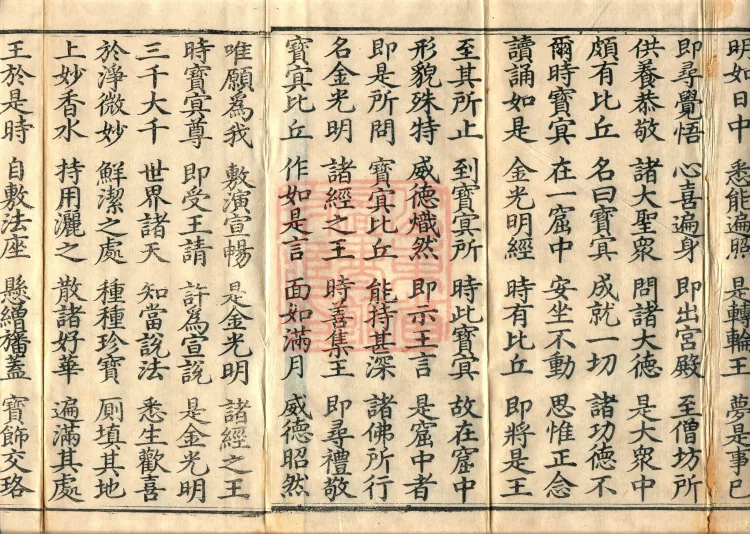 明如日中 悉能遍照 是轉輪王 夢是事已
即尋覺悟 心喜遍身 即出宮殿 至僧坊所
供養恭敬 諸大聖眾 問諸大德 是大眾中
頗有比丘 名曰寶冥 成就一切 諸功德不
爾時寶冥 在一窟中 安坐不動 思惟正念
讀誦如是 金光明經 時有比丘 即將是王
至其所止 到寶冥所 時此寶冥 故在窟中
形貌殊特 威德熾然 即示王言 是窟中者
即是所問 寶冥比丘 能持甚深 諸佛所行
名金光明 諸經之王 時善集王 即尋禮敬
寶冥比丘 作如是言 面如滿月 威德昭然
唯願為我 敷演宣暢 是金光明 諸經之王
時寶冥尊 即受王請 許為宣說 是金光明
三千大千 世界諸天 知當說法 悉生歡喜
於淨微妙 鮮潔之處 種種珍寶 厠填其地
上妙香水 持用灑之 散諸好華 遍滿其處
王於是時 自敷法座 懸繒旛蓋 寶飾交珞